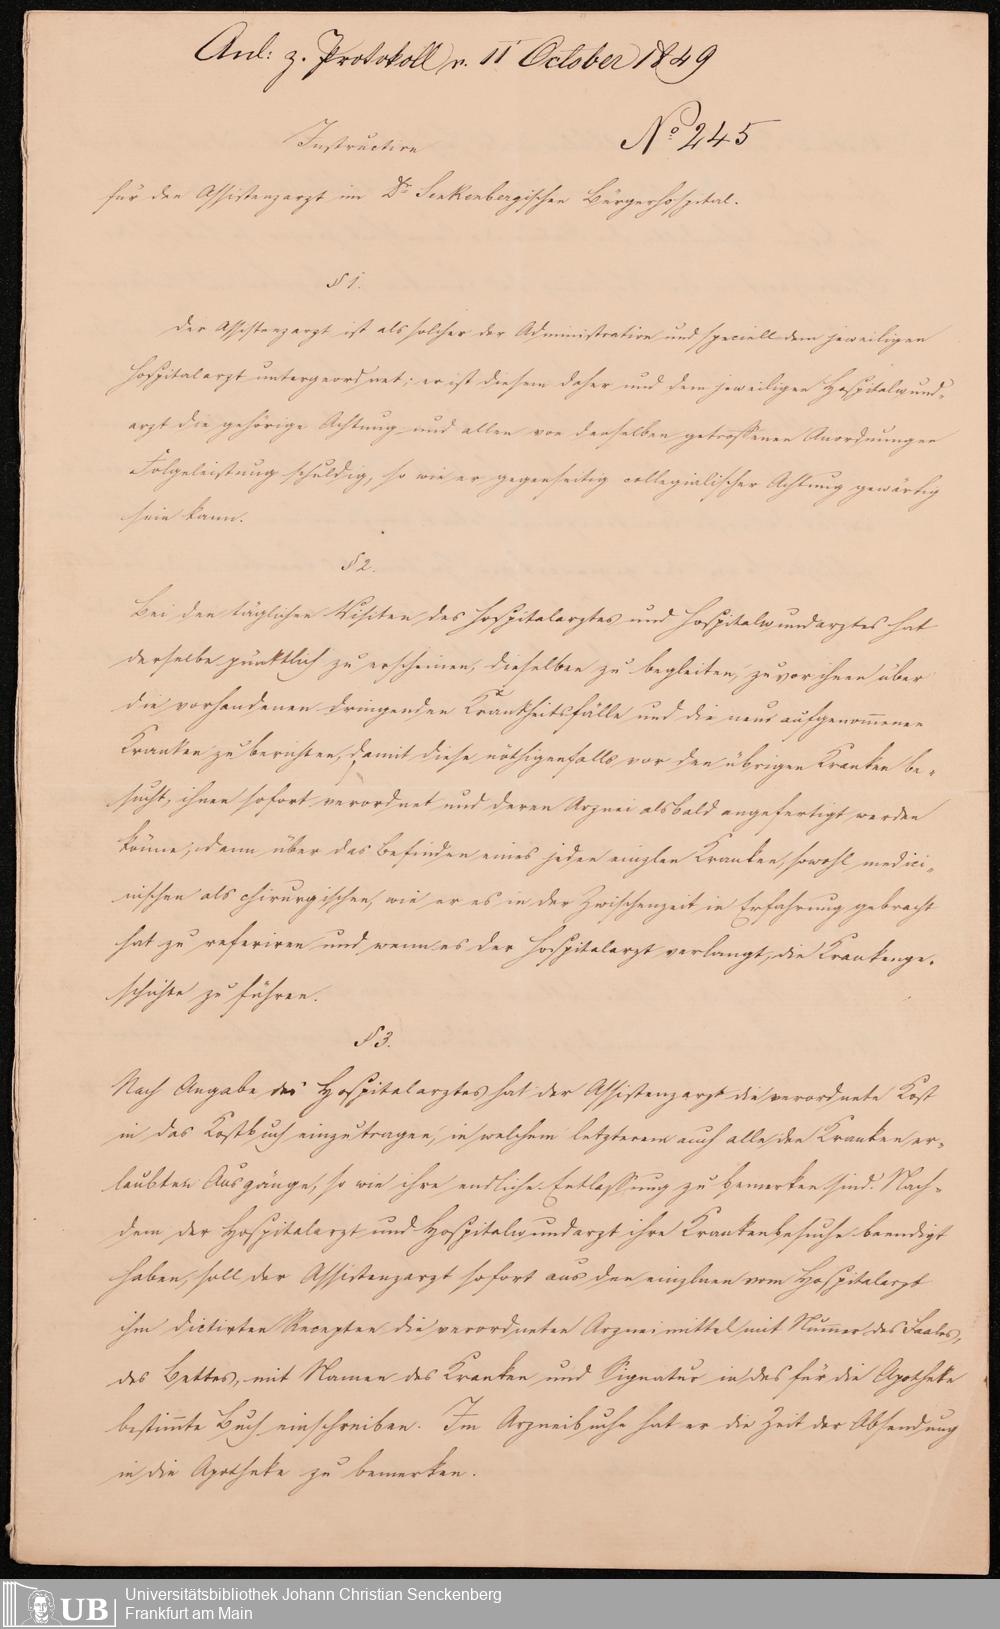 Anl: z. Protokoll v. 11 October 1849
No 245
Instruction
für den Assistenzarzt im Dr Senkenbergischen Bürgerhospital.
§ 1.
Der Assistenzarzt ist als solcher der Administration und speciell dem jeweiligen
Hospitalarzt untergeordnet; er ist diesem daher und dem jeweiligen Hospitalwund-
arzt die gehörige Achtung und allen von denselben getroffenen Anordnungen
Folgeleistung schuldig, so wie er gegenseitig collegialischer Achtung gewärtig
sein kann.
§ 2.
Bei den täglichen Visiten des Hospitalarztes und Hospitalwundarztes hat
derselbe pünktlich zu erscheinen, dieselben zu begleiten, zuvor ihnen über
die vorhandenen dringenden Krankheitsfälle und die neu aufgenommenen
Kranken zu berichten, damit diese nöthigenfalls vor den übrigen Kranken be-
sucht, ihnen sofort verordnet und deren Arznei alsbald angefertigt werden
könne; dann über das Befinden eines jeden einzlen Kranken, sowohl medici-
nischen als chirurgischen, wie er es in der Zwischenzeit in Erfahrung gebracht
hat zu referiren und wenn es der Hospitalarzt verlangt, die Krankenge-
schichte zu führen.
§ 3.
Nach Angabe des Hospitalarztes hat der Assistenzarzt die verordnete Kost
in das Kostbuch einzutragen, in welchem letzterem auch alle den Kranken er-
laubten Ausgänge, so wie ihre endliche Entlassung zu bemerken sind. Nach-
dem der Hospitalarzt und Hospitalwundarzt ihre Krankenbesuche beendigt
haben, soll der Assistenzarzt sofort aus den einzlnen vom Hospitalarzt
ihm dictirten Recepten die verordneten Arzneimittel mit Nummer des Saales,
des Bettes, mit Namen des Kranken und Signatur in das für die Apotheke
bestimmte Buch einschreiben. Im Arzneibuche hat er die Zeit der Absendung
in die Apotheke zu bemerken.
UB
Universitätsbibliothek Johann Christian Senckenberg
Frankfurt am Main